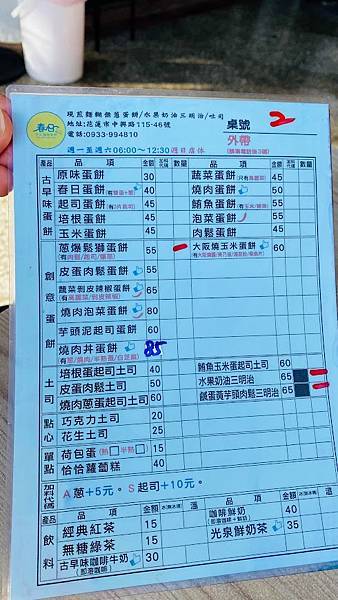 春日
現煎麵糊做蔥蛋餅/水果奶油三明治/吐司
地址:花蓮市中興路115-46號
電話:0933-994810
桌號 2
外帶
週一至週六06:00~12:30週日店休
產品 品項 金額 加料代碼 數量 品項 金額 加料代碼 數量
古早味蛋餅
原味蛋餅 30 蔬菜蛋餅(只有高麗菜) 45
春日蛋餅(有雙蛋+蔥) 40 燒肉蛋餅 50
起司蛋餅(有3片起司) 45 鮪魚蛋餅 55
培根蛋餅 45 泡菜蛋餅 55
玉米蛋餅 45 肉鬆蛋餅 45
創意蛋餅
蔥爆鬆獅蛋餅 55 大阪燒玉米蛋餅 60
皮蛋肉鬆蛋餅 55
蔬菜剝皮辣椒蛋餅(有高麗菜/剝皮辣椒) 65
燒肉泡菜蛋餅 80
芋頭泥起司蛋餅 60
燒肉丼蛋餅 85
土司
培根蛋起司土司 40 鮪魚玉米蛋起司土司 60
皮蛋肉鬆土司 50 水果奶油三明治 65
燒肉蔥蛋起司土司 60 鹹蛋黃芋頭肉鬆三明治 65
點心
巧克力土司 20
花生土司 25
單點
荷包蛋(熟 半熟) 15
恰恰蘿蔔糕 40
加料代碼 A蔥+5元。 S起司+10元。
產品 品項 金額 溫 品項 金額 溫
飲料
經典紅茶 15 咖啡鮮奶 40
無糖綠茶 15 光泉鮮奶茶 35
古早味咖啡牛奶(即溶咖啡) 30